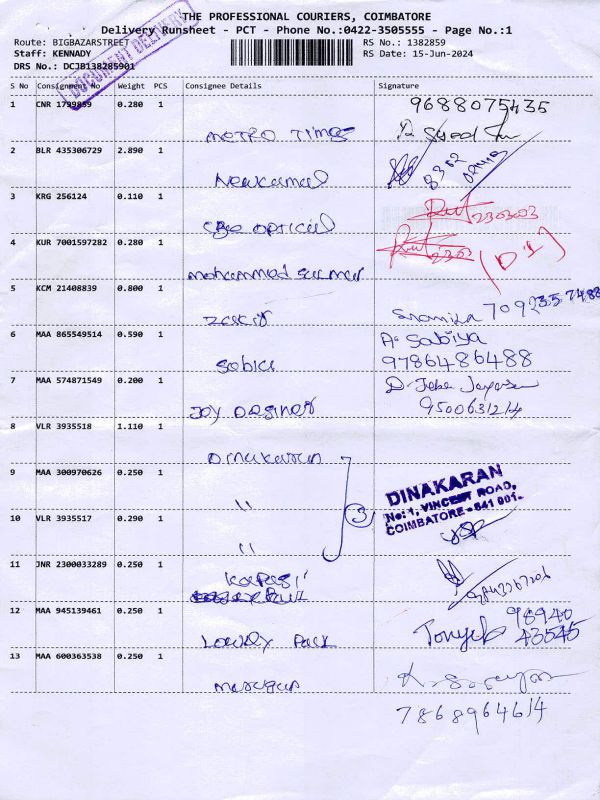 THE PROFESSIONAL COURIERS, COIMBATORE
Delivery Runsheet - PCT - Phone No.:0422-3505555 - Page No.:1
Route: BIGBAZARSTREET RS No.: 1382859
Staff: KENNADY RS Date: 15-Jun-2024
DRS No.: DCJB138285901
DOCUMENT DELIVERY
S No Consignment No Weight PCS Consignee Details Signature
1 CNR 1799869 0.280 1 9688075435
METRO Times
2 BLR 435306729 2.890 1
Newkamal
3 KRG 256124 0.110 1
CBE optical
4 KUR 7001597282 0.280 1 (D1)
mohammed
5 KCM 21408839 0.800 1
6 MAA 865549514 0.590 1 A. Sabiya
Sobia 9786486488
7 MAA 574871549 0.200 1
Joy Designer 9500631214
8 VLR 3935518 1.110 1
Dinakaran
9 MAA 300970626 0.250 1
" 3
DINAKARAN
No: 1, VINCENT ROAD,
COIMBATORE - 641 001.
10 VLR 3935517 0.290 1
"
11 JNR 2300033289 0.250 1
12 MAA 945139461 0.250 1 98940
Lovely Pack 43545
13 MAA 600363538 0.250 1
murugan
7868964614